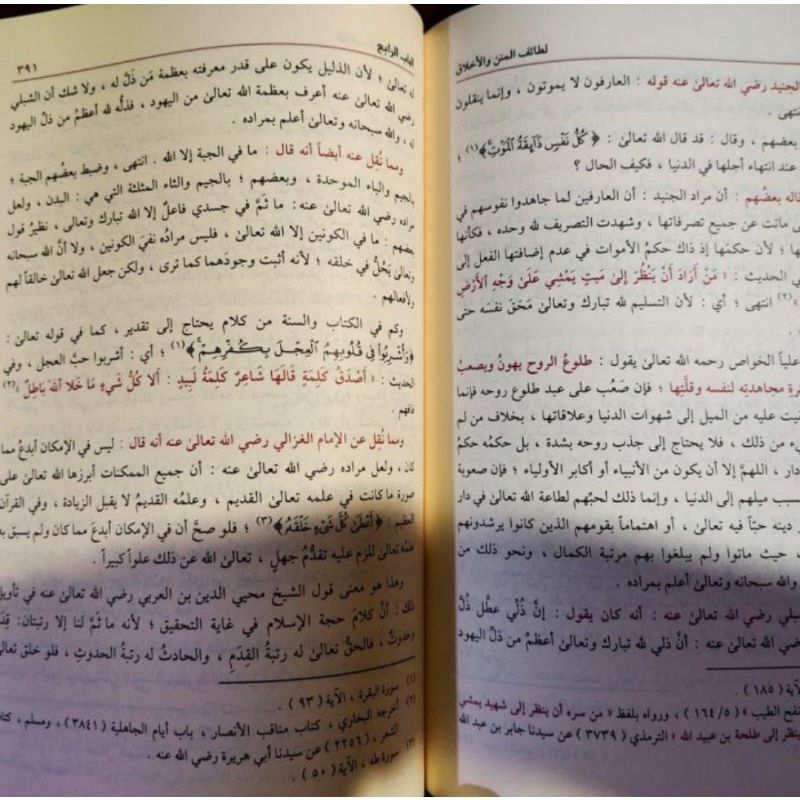 لطائف المنن والأخلاق
الجنيد رضي الله تعالى عنه قوله : العارفون لا يموتون ، وإنما ينقلون
انتهى .
بعضهم ، وقال : قد قال الله تعالى : ﴿ كُلُّ نَفْسٍ ذَائِقَةُ الْمَوْتِ ﴾(١) ؛
عند انتهاء أجلها في الدنيا ، فكيف الحال ؟
قاله بعضُهم : أن مراد الجنيد : أن العارفين لما جاهدوا نفوسهم في
ى ماتت عن جميع تصرفاتها ، وشهدت التصريف لله وحده ، فكأنها
ها ؛ لأن حكمَها إذ ذاك حكمُ الأموات في عدم إضافتها الفعل إلى
ي الحديث : « مَنْ أَرَادَ أَنْ يَنْظُرَ إِلَىٰ مَيِّتٍ يَمْشِي عَلَىٰ وَجْهِ الْأَرْضِ
»(٢) انتهى ؛ أي : لأن التسليم لله تبارك وتعالى مَحَقَ نفسَه حتى
علياً الخواص رحمه الله تعالى يقول : طلوعُ الروح يهونُ ويصعبُ
رة مجاهدته لنفسه وقلَّتِها ؛ فإن صَعُب على عبد طلوع روحه فإنما
بقيت عليه من الميل إلى شهوات الدنيا وعلاقاتها ، بخلاف من لم
يء من ذلك ، فلا يحتاج إلى جذب روحه بشدة ، بل حكمُه حكمُ
دار ، اللهمَّ إلا أن يكون من الأنبياء أو أكابر الأولياء ؛ فإن صعوبة
سبب ميلهم إلى الدنيا ، وإنما ذلك لحبِّهم لطاعة الله تعالى في دار
دينه حبّاً فيه تعالى ، أو اهتماماً بقومهم الذين كانوا يرشدونهم
، حيث ماتوا ولم يبلغوا بهم مرتبة الكمال ، ونحو ذلك من
والله سبحانه وتعالى أعلم بمراده .
لشبلي رضي الله تعالى عنه : أنه كان يقول : إنَّ ذُلِّي عطَّل ذُلَّ
ضي الله تعالى عنه : أن ذلي لله تبارك وتعالى أعظمُ من ذلِّ اليهود
الآية ( ١٨٥ ) .
نفح الطيب » ( ٥/ ١٦٤ ) ، ورواه بلفظ « من سره أن ينظر إلى شهيد يمشي
ينظر إلى طلحة بن عبيد الله » الترمذي ( ٣٧٣٩ ) عن سيدنا جابر بن عبد الله
الباب الرابع
٣٩١
له تعالى ؛ لأن الذليل يكون على قدر معرفته بعظمة مَن ذَلَّ له ، ولا شك أن الشبلي
رضي الله تعالى عنه أعرف بعظمة الله تعالى من اليهود ، فذلُّه لله أعظمُ من ذلِّ اليهود
له ، والله سبحانه وتعالى أعلم بمراده .
ومما نُقِل عنه أيضاً أنه قال : ما في الجبة إلا الله . انتهى ، وضبط بعضُهم الجبة ؛
بالجيم والباء الموحدة ، وبعضهم ؛ بالجيم والثاء المثلثة التي هي : البدن ، ولعل
مراده رضي الله تعالى عنه : ما ثَمَّ في جسدي فاعلٌ إلا الله تبارك وتعالى ، نظيرُ قول
بعضهم : ما في الكونين إلا الله تعالى ، فليس مرادُه نفيَ الكونين ، ولا أنَّ الله سبحانه
وتعالى يَحُلُّ في خلقه ؛ لأنه أثبت وجودَهما كما ترى ، ولكن جعل الله تعالى خالقاً لهم
ولأفعالهم .
وكم في الكتاب والسنة من كلام يحتاج إلى تقدير ، كما في قوله تعالى :
﴿وَأُشْرِبُوا فِي قُلُوبِهِمُ الْعِجْلَ بِكُفْرِهِمْ﴾(١) ؛ أي : أشربوا حبَّ العجل ، وفي
الحديث : « أَصْدَقُ كَلِمَةٍ قَالَهَا شَاعِرٌ كَلِمَةُ لَبِيدٍ : أَلَا كُلُّ شَيْءٍ مَا خَلَا اللهَ بَاطِلُ »(٢)
فافهم .
ومما نُقِل عن الإمام الغزالي رضي الله تعالى عنه أنه قال : ليس في الإمكان أبدعُ مما
كان ، ولعل مراده رضي الله تعالى عنه : أن جميع الممكنات أبرزها الله تعالى على
صورة ما كانت في علمه تعالى القديم ، وعلمُه القديمُ لا يقبل الزيادة ، وفي القرآن
العظيم : ﴿أَعْطَىٰ كُلَّ شَيْءٍ خَلْقَهُ﴾(٣) ؛ فلو صحَّ أن في الإمكان أبدعَ مما كان ولم يسبق به
علمُه تعالى للزم عليه تقدُّمُ جهلٍ ، تعالى الله عن ذلك علواً كبيراً .
وهذا هو معنى قول الشيخ محيي الدين بن العربي رضي الله تعالى عنه في تأويل
ذلك : أنَّ كلامَ حجة الإسلام في غاية التحقيق ؛ لأنه ما ثَمَّ لنا إلا رتبتان : قِدَمٌ
وحدوثٌ ، فالحقُّ تعالى له رتبةُ القِدَمِ ، والحادثُ له رتبةُ الحدوثِ ، فلو خلق تعالى
(١) سورة البقرة ، الآية ( ٩٣ ) .
(٢) أخرجه البخاري ، كتاب مناقب الأنصار ، باب أيام الجاهلية ( ٣٨٤١ ) ، ومسلم ، كتاب
الشعر ، ( ٢٢٥٦ ) عن سيدنا أبي هريرة رضي الله عنه .
(٣) سورة طه ، الآية ( ٥٠ ) .